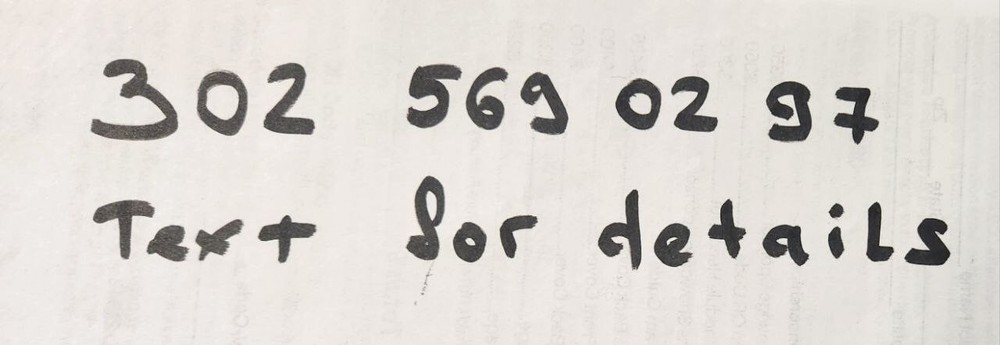 302 569 02 97
Text for details